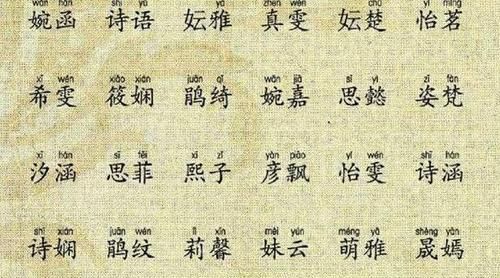 婉函 诗语 妘雅 真雯 妘楚 怡茗
xī wén xiǎo xián juān qǐ wǎn jiā sī yì zī fàn
希雯 筱娴 鹃绮 婉嘉 思懿 姿梵
xī hán sī fēi xī zǐ yàn piāo yí wén shī hán
汐涵 思菲 熙子 彦飘 怡雯 诗涵
shī xián juān wén lì xīn mèi yún méng yǎ shèng yān
诗娴 鹃纹 莉馨 妹云 萌雅 晟嫣